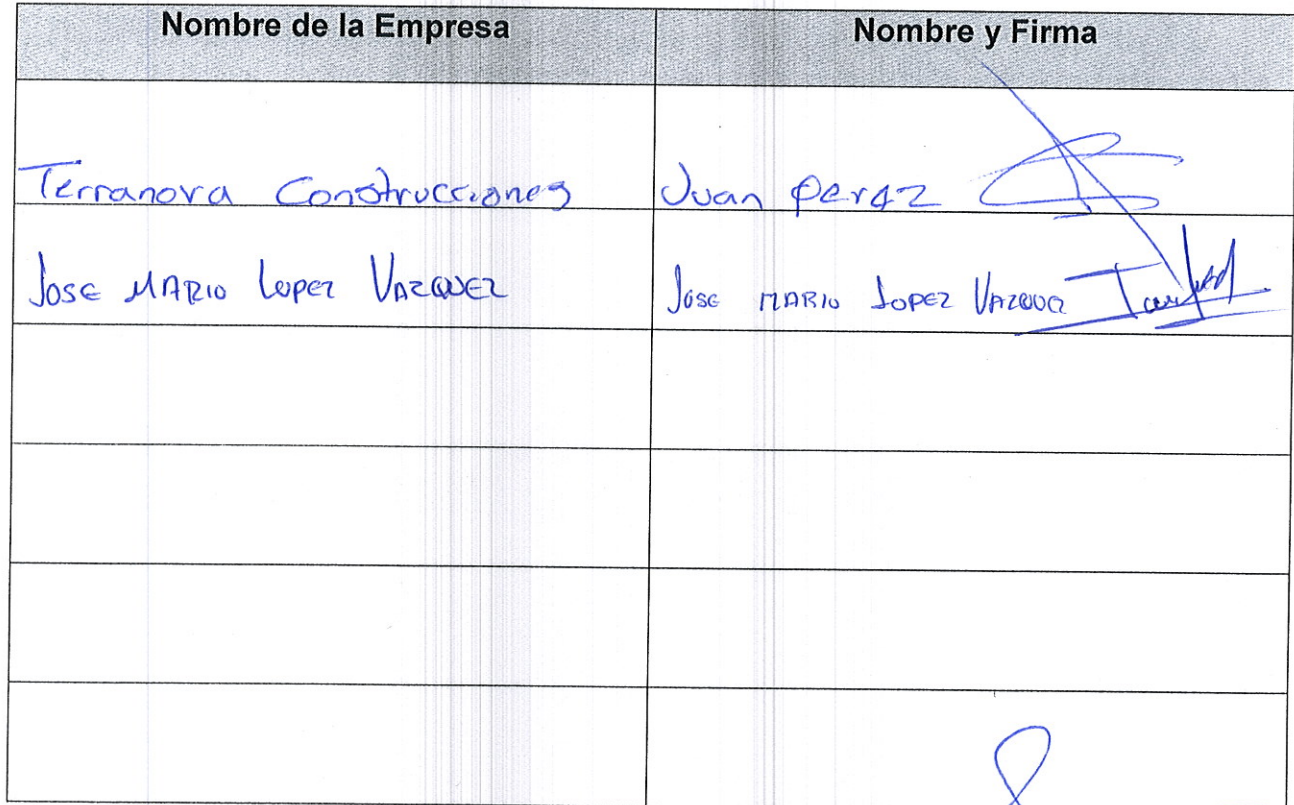 Nombre de la Empresa Nombre y Firma
Terranova Construcciones Juan perez
Jose MARIO Lopez VAZQUEZ Jose MARIO Lopez VAZQUEZ